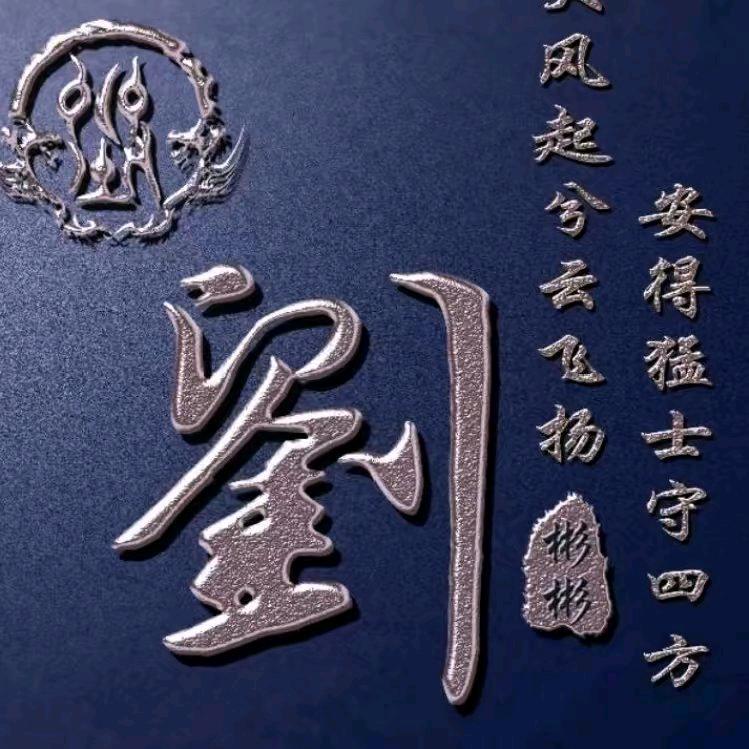 风起兮云飞扬
安得猛士守四方
劉
彬彬